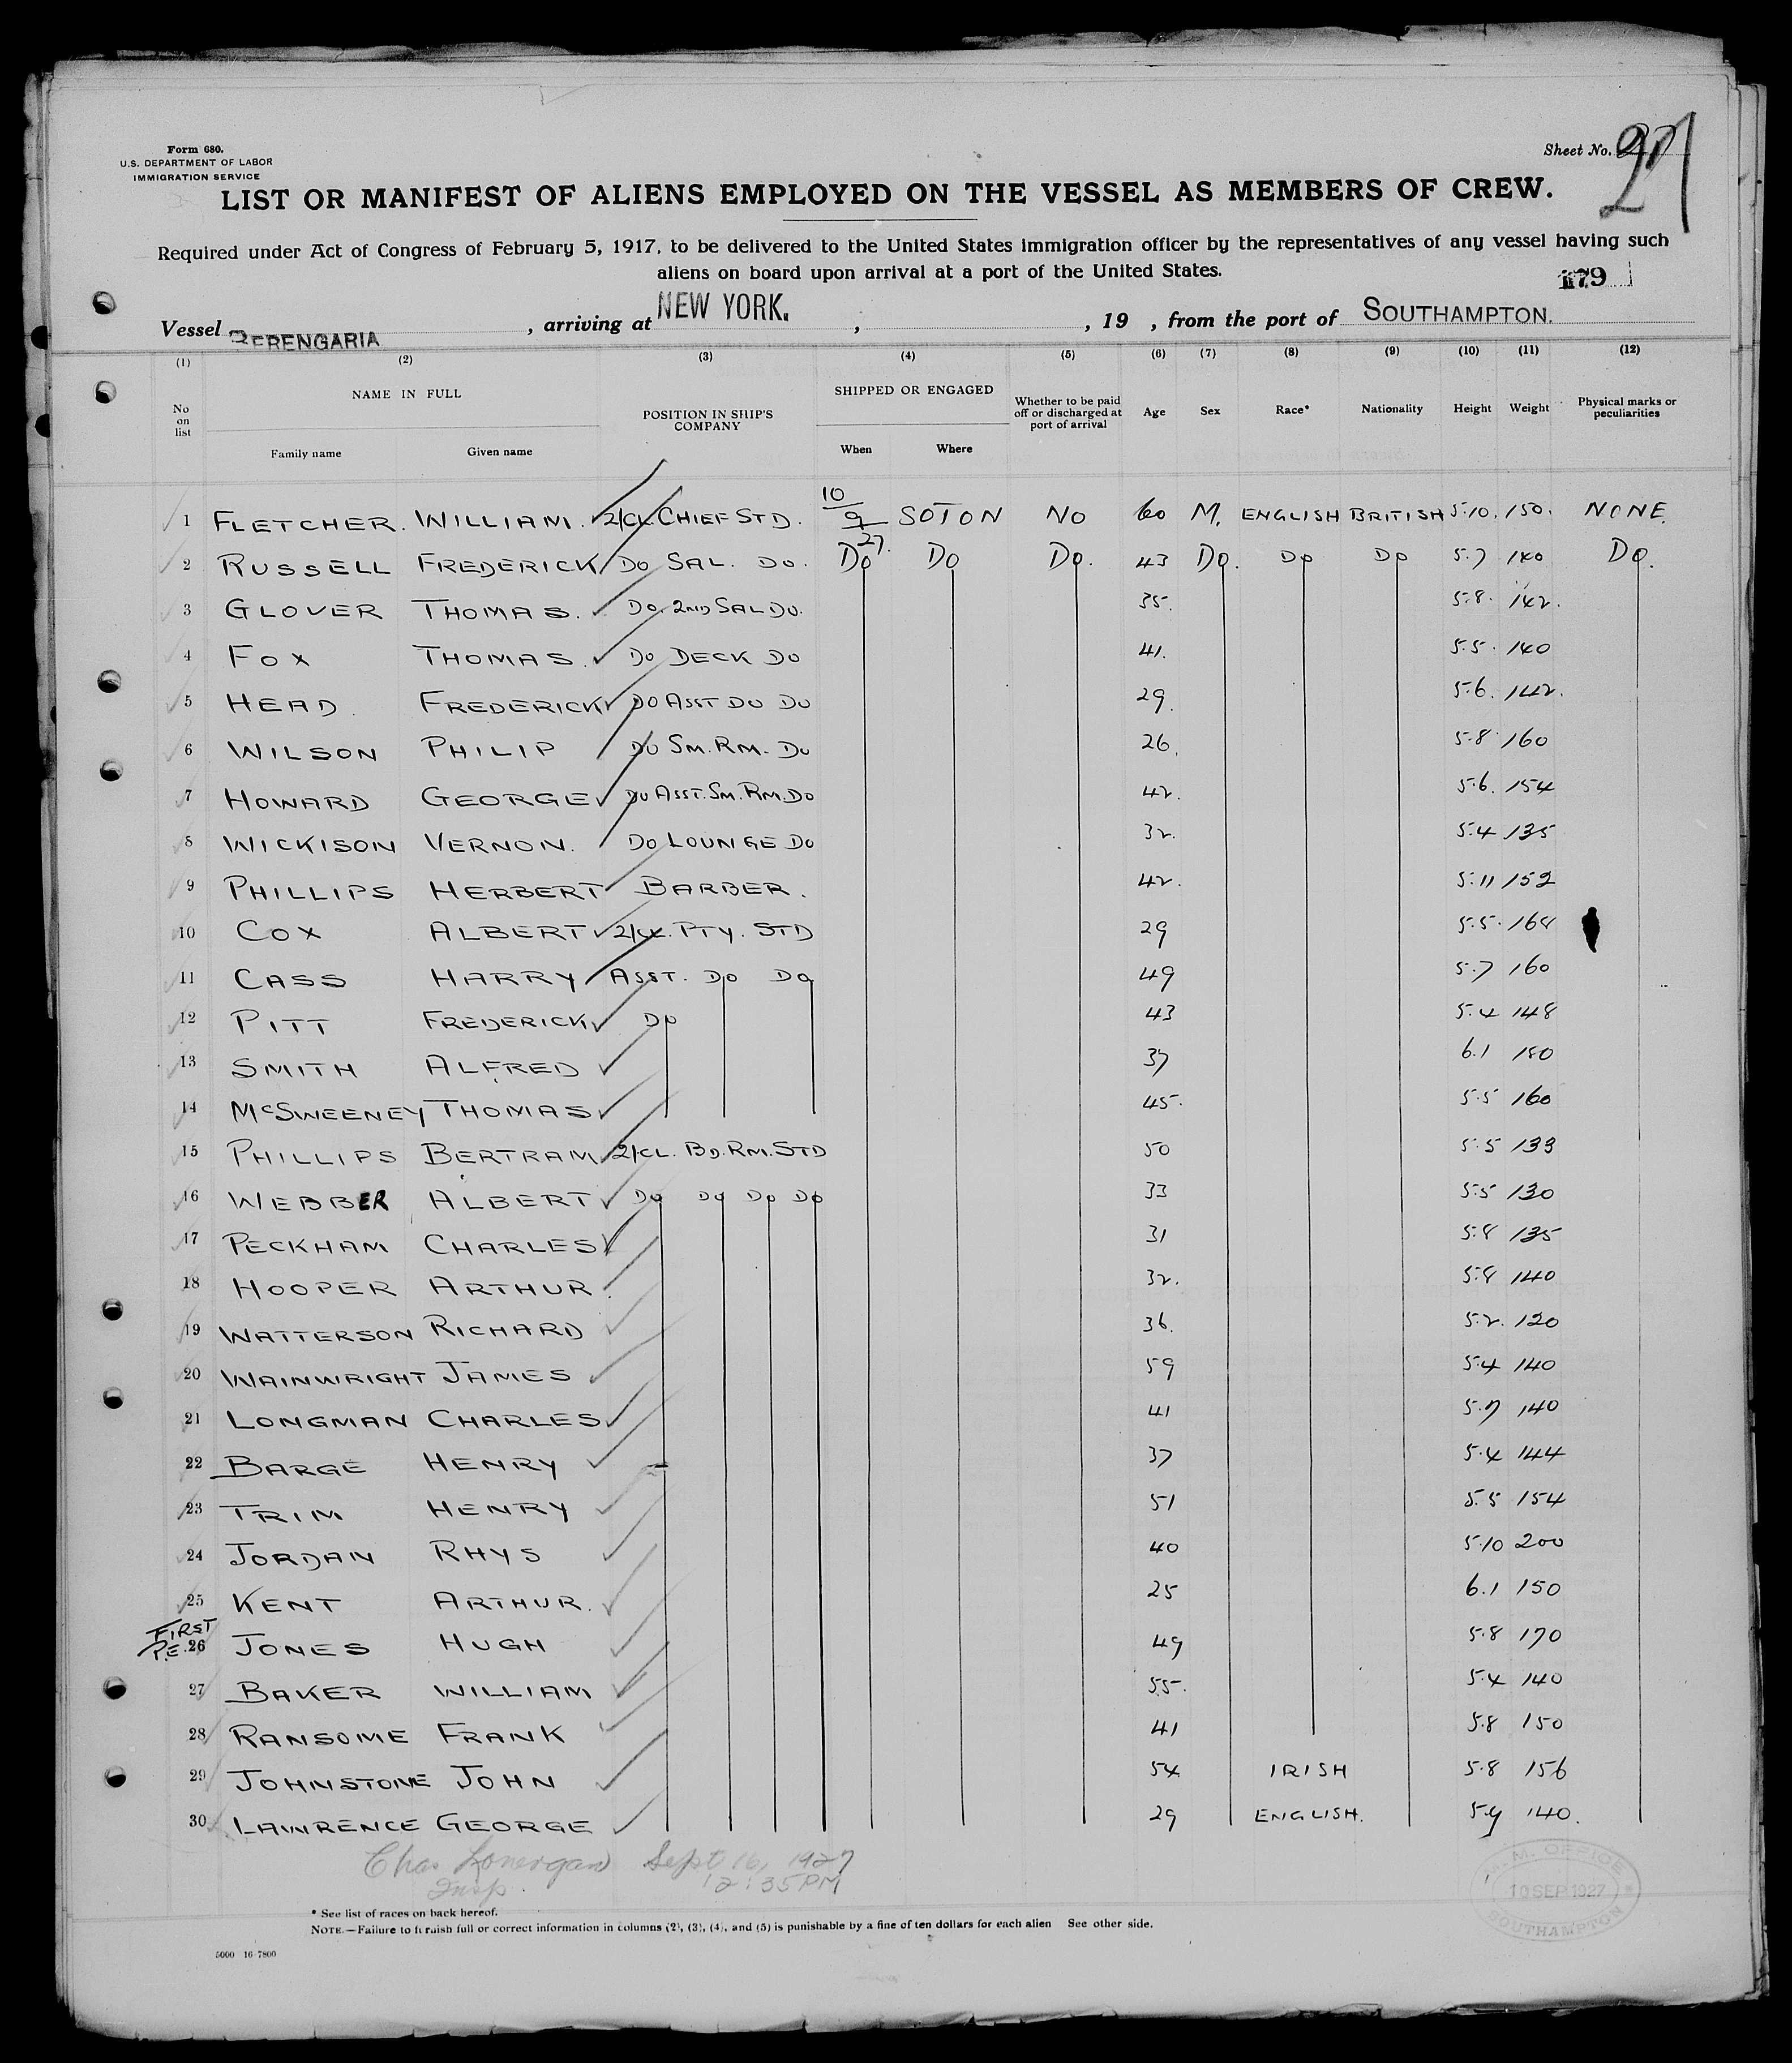 Form 680.
U.S. DEPARTMENT OF LABOR
IMMIGRATION SERVICE
Sheet No. 27
LIST OR MANIFEST OF ALIENS EMPLOYED ON THE VESSEL AS MEMBERS OF CREW.
Required under Act of Congress of February 5, 1917, to be delivered to the United States immigration officer by the representatives of any vessel having such
aliens on board upon arrival at a port of the United States.
179
Vessel BERENGARIA, arriving at NEW YORK. , , 19 , from the port of SOUTHAMPTON.
(1) (2) (3) (4) (5) (6) (7) (8) (9) (10) (11) (12)
No on list NAME IN FULL Family name Given name POSITION IN SHIP'S COMPANY SHIPPED OR ENGAGED When Where Whether to be paid off or discharged at port of arrival Age Sex Race* Nationality Height Weight Physical marks or peculiarities
1 FLETCHER. WILLIAM. 2/CL. CHIEF STD. 10/9 27. SOTON NO 60 M. ENGLISH BRITISH 5.10. 150. NONE.
2 RUSSELL FREDERICK DO SAL. DO. DO DO DO. 43 DO. DO DO 5.7 140 DO.
3 GLOVER THOMAS. DO. 2ND SAL DO. 35. 5.8. 142.
4 FOX THOMAS. DO DECK DO 41. 5.5. 140
5 HEAD FREDERICK DO ASST DO DO 29. 5.6. 142.
6 WILSON PHILIP DO SM. RM. DO 26. 5.8 160
7 HOWARD GEORGE DO ASST. SM. RM. DO 42. 5.6. 154
8 WICKISON VERNON. DO LOUNGE DO 32. 5.4 135
9 PHILLIPS HERBERT BARBER. 42. 5.11 152
10 COX ALBERT 2/CL. PTY. STD 29 5.5. 168
11 CASS HARRY ASST. DO DO 49 5.7 160
12 PITT FREDERICK DO 43 5.4 148
13 SMITH ALFRED 37 6.1 180
14 McSWEENEY THOMAS 45. 5.5 160
15 PHILLIPS BERTRAM 2/CL. BD. RM. STD 50 5.5 133
16 WEBBER ALBERT DO DO DO DO 33 5.5 130
17 PECKHAM CHARLES 31 5.8 135
18 HOOPER ARTHUR. 32. 5.8 140
19 WATTERSON RICHARD 36. 5.2. 120
20 WAINWRIGHT JAMES 59 5.4 140
21 LONGMAN CHARLES 41 5.7 140
22 BARGE HENRY 37 5.4 144
23 TRIM HENRY 51 5.5 154
24 JORDAN RHYS 40 5.10 200
25 KENT ARTHUR. 25 6.1 150
FIRST P.E. 26 JONES HUGH 49 5.8 170
27 BAKER WILLIAM 55. 5.4 140
28 RANSOME FRANK 41 5.8 150
29 JOHNSTONE JOHN 54 IRISH 5.8 156
30 LAWRENCE GEORGE 29 ENGLISH. 5.9 140.
Chas Lonergan Sept 16, 1927
Insp. 12:35 PM
M. OFFICE
10 SEP 1927
SOUTHAMPTON
* See list of races on back hereof.
NOTE.—Failure to furnish full or correct information in columns (2), (3), (4), and (5) is punishable by a fine of ten dollars for each alien See other side.
5000 16-7800